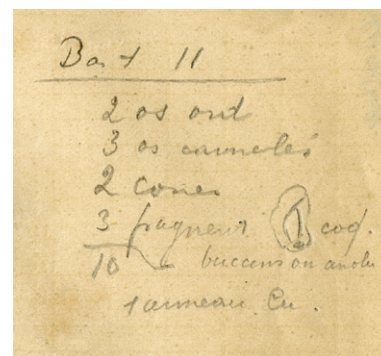 Bat 11
2 os ord
3 os cannelés
2 cones
3 fragment coq.
10 buccins ou
1 anneau Cu.